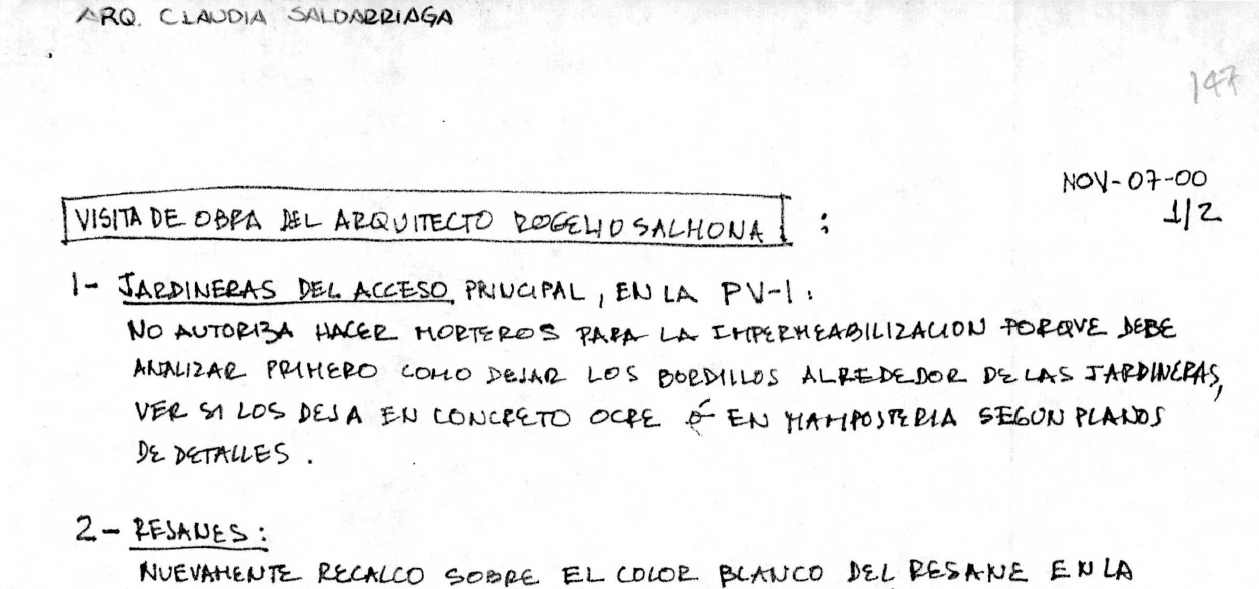 ARQ. CLAUDIA SALDARRIAGA
147
NOV-07-00
1/2
VISITA DE OBRA DEL ARQUITECTO ROGELIO SALMONA :
1- JARDINERAS DEL ACCESO PRINCIPAL, EN LA PV-1:
NO AUTORIZA HACER MORTEROS PARA LA IMPERMEABILIZACION PORQUE DEBE
ANALIZAR PRIMERO COMO DEJAR LOS BORDILLOS ALREDEDOR DE LAS JARDINERAS,
VER SI LOS DEJA EN CONCRETO OCRE ó EN MAMPOSTERIA SEGUN PLANOS
DE DETALLES.
2- RESANES:
NUEVAMENTE RECALCO SOBRE EL COLOR BLANCO DEL RESANE EN LA